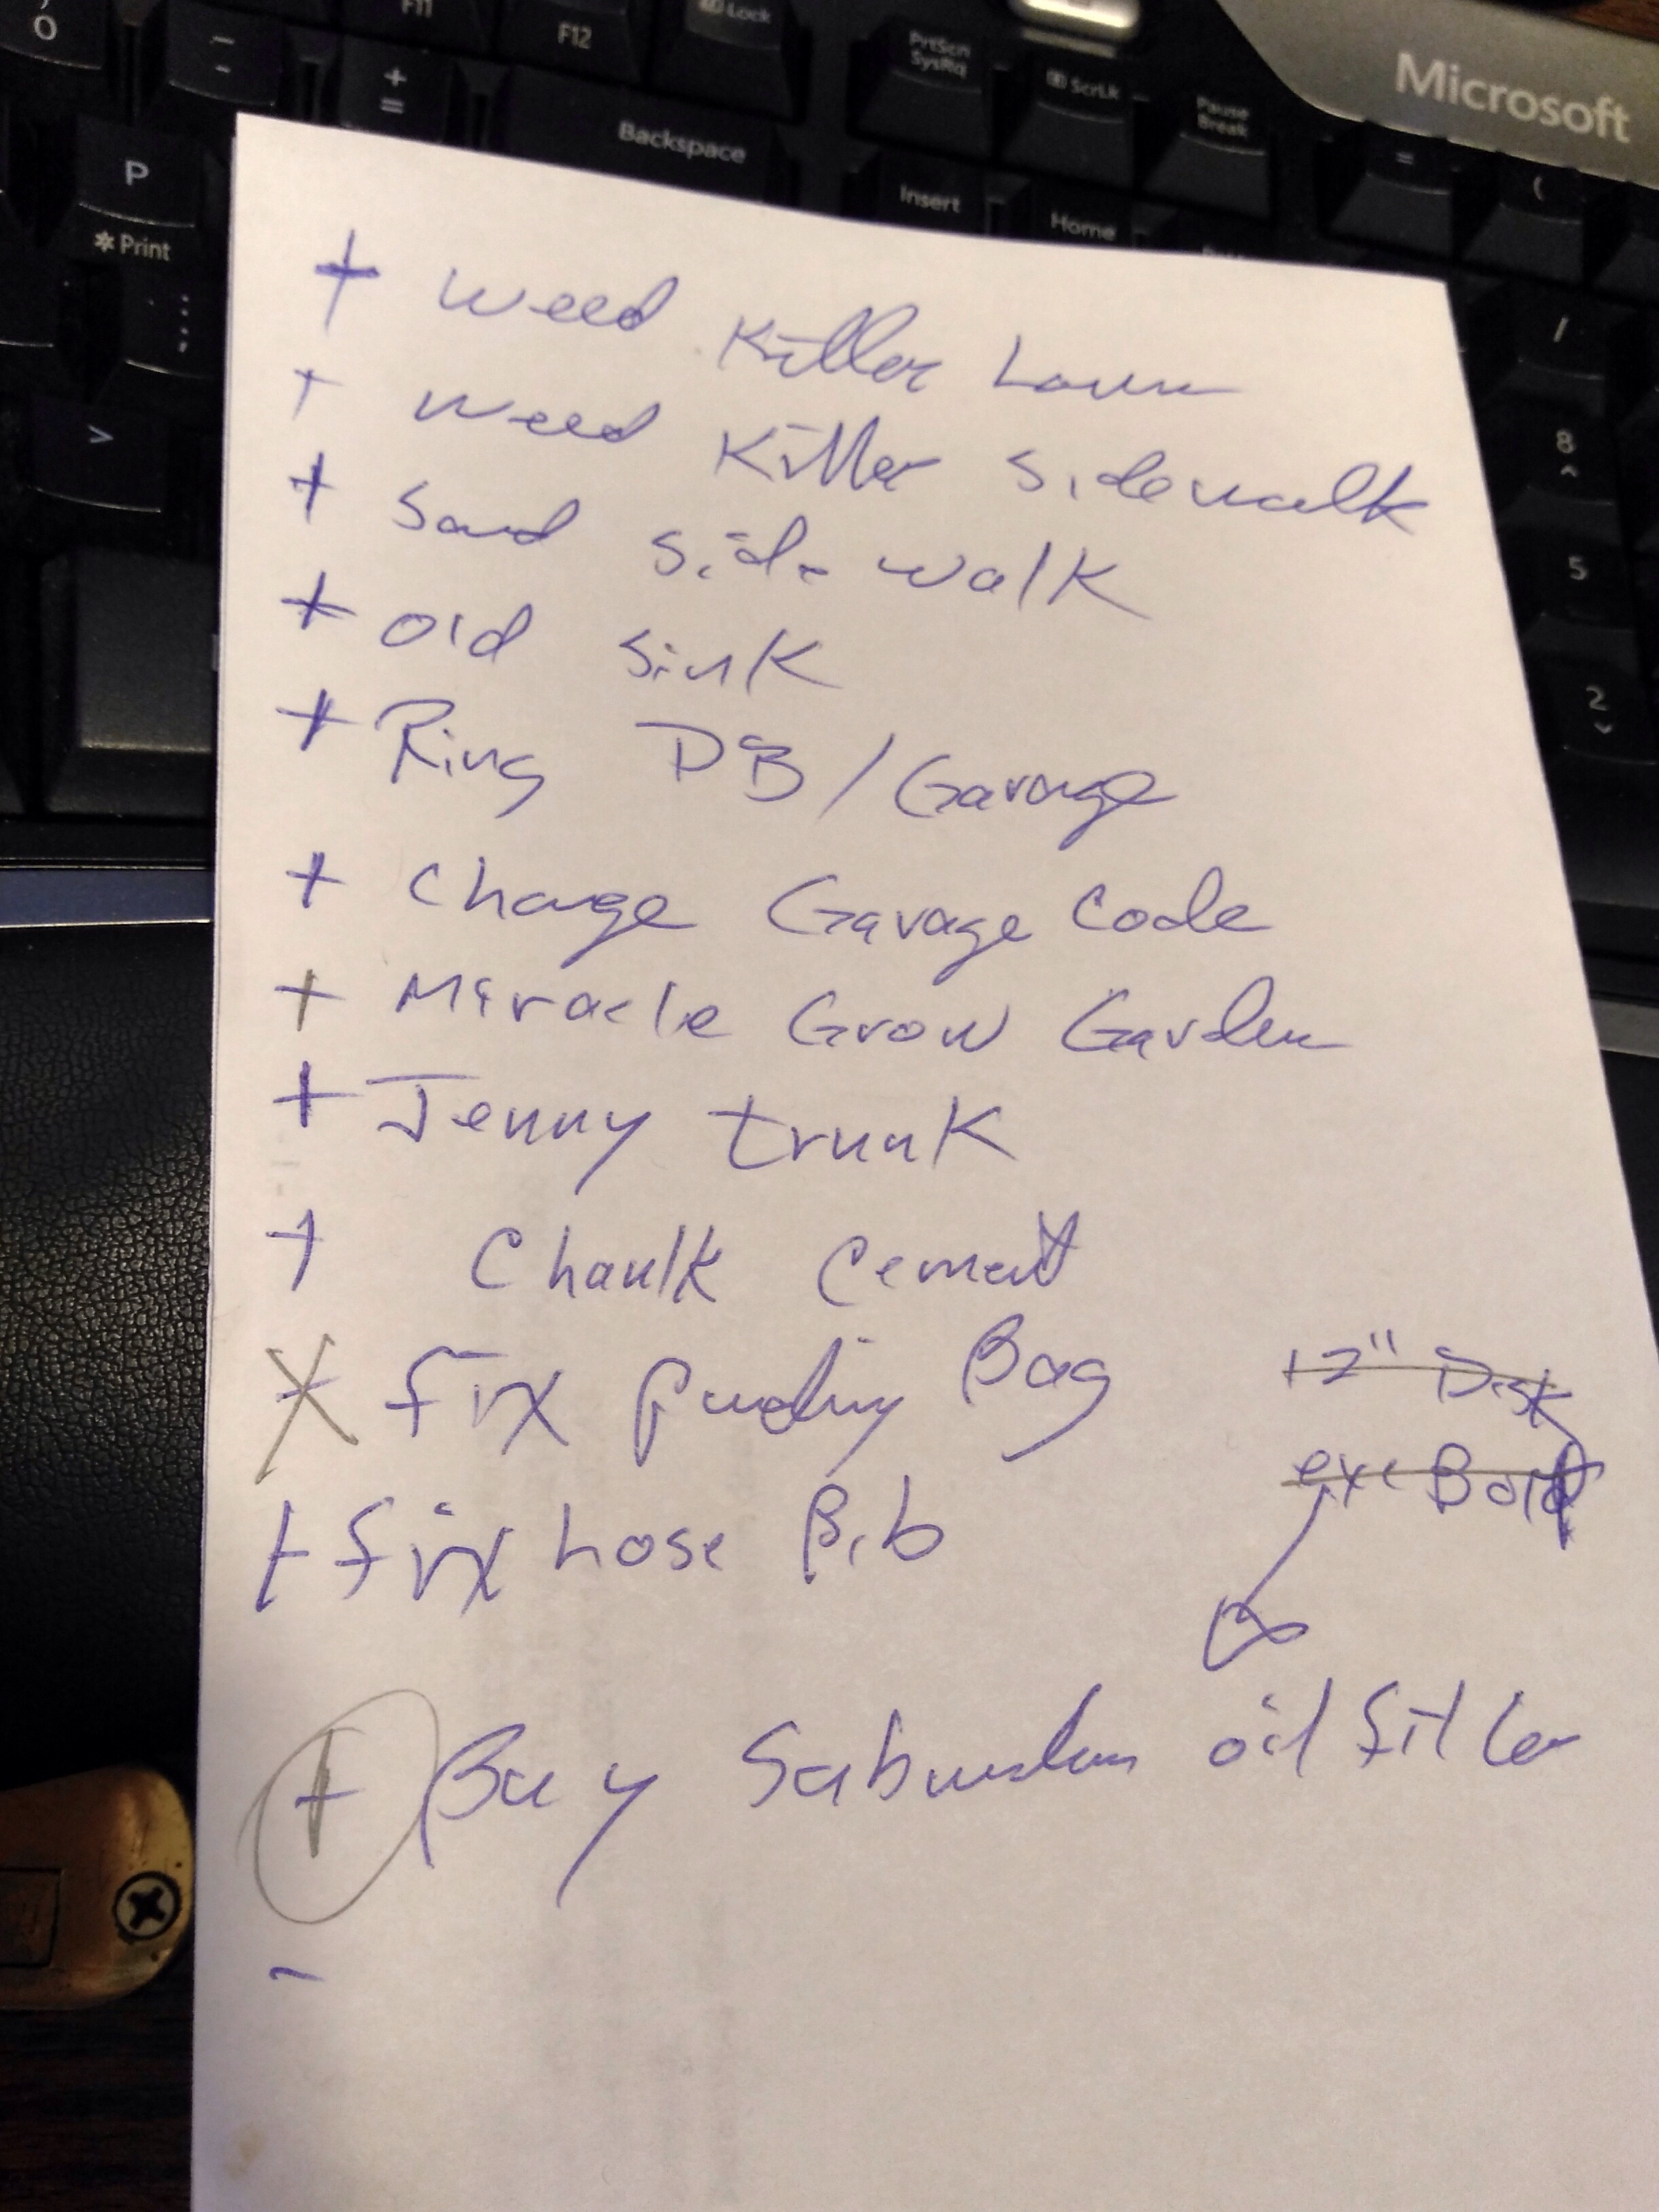 O
-
-
+
=
F11
F12
Lock
PrtScn
SysRq
ScrLk
Pause
Break
Microsoft
P
*Print
Backspace
Insert
Home
=
(
:
;
>
/
8
5
2
+ weed Killer Lawn
+ weed Killer Sidewalk
+ Sand side walk
+ old sink
+ Ring DB/Garage
+ change Garage code
+ Miracle Grow Garden
+ Jenny trunk
+ Chaulk Cement
+ fix Bag
12" Disk
+ fix hose Bib
+ Buy Suburban oil filter
-